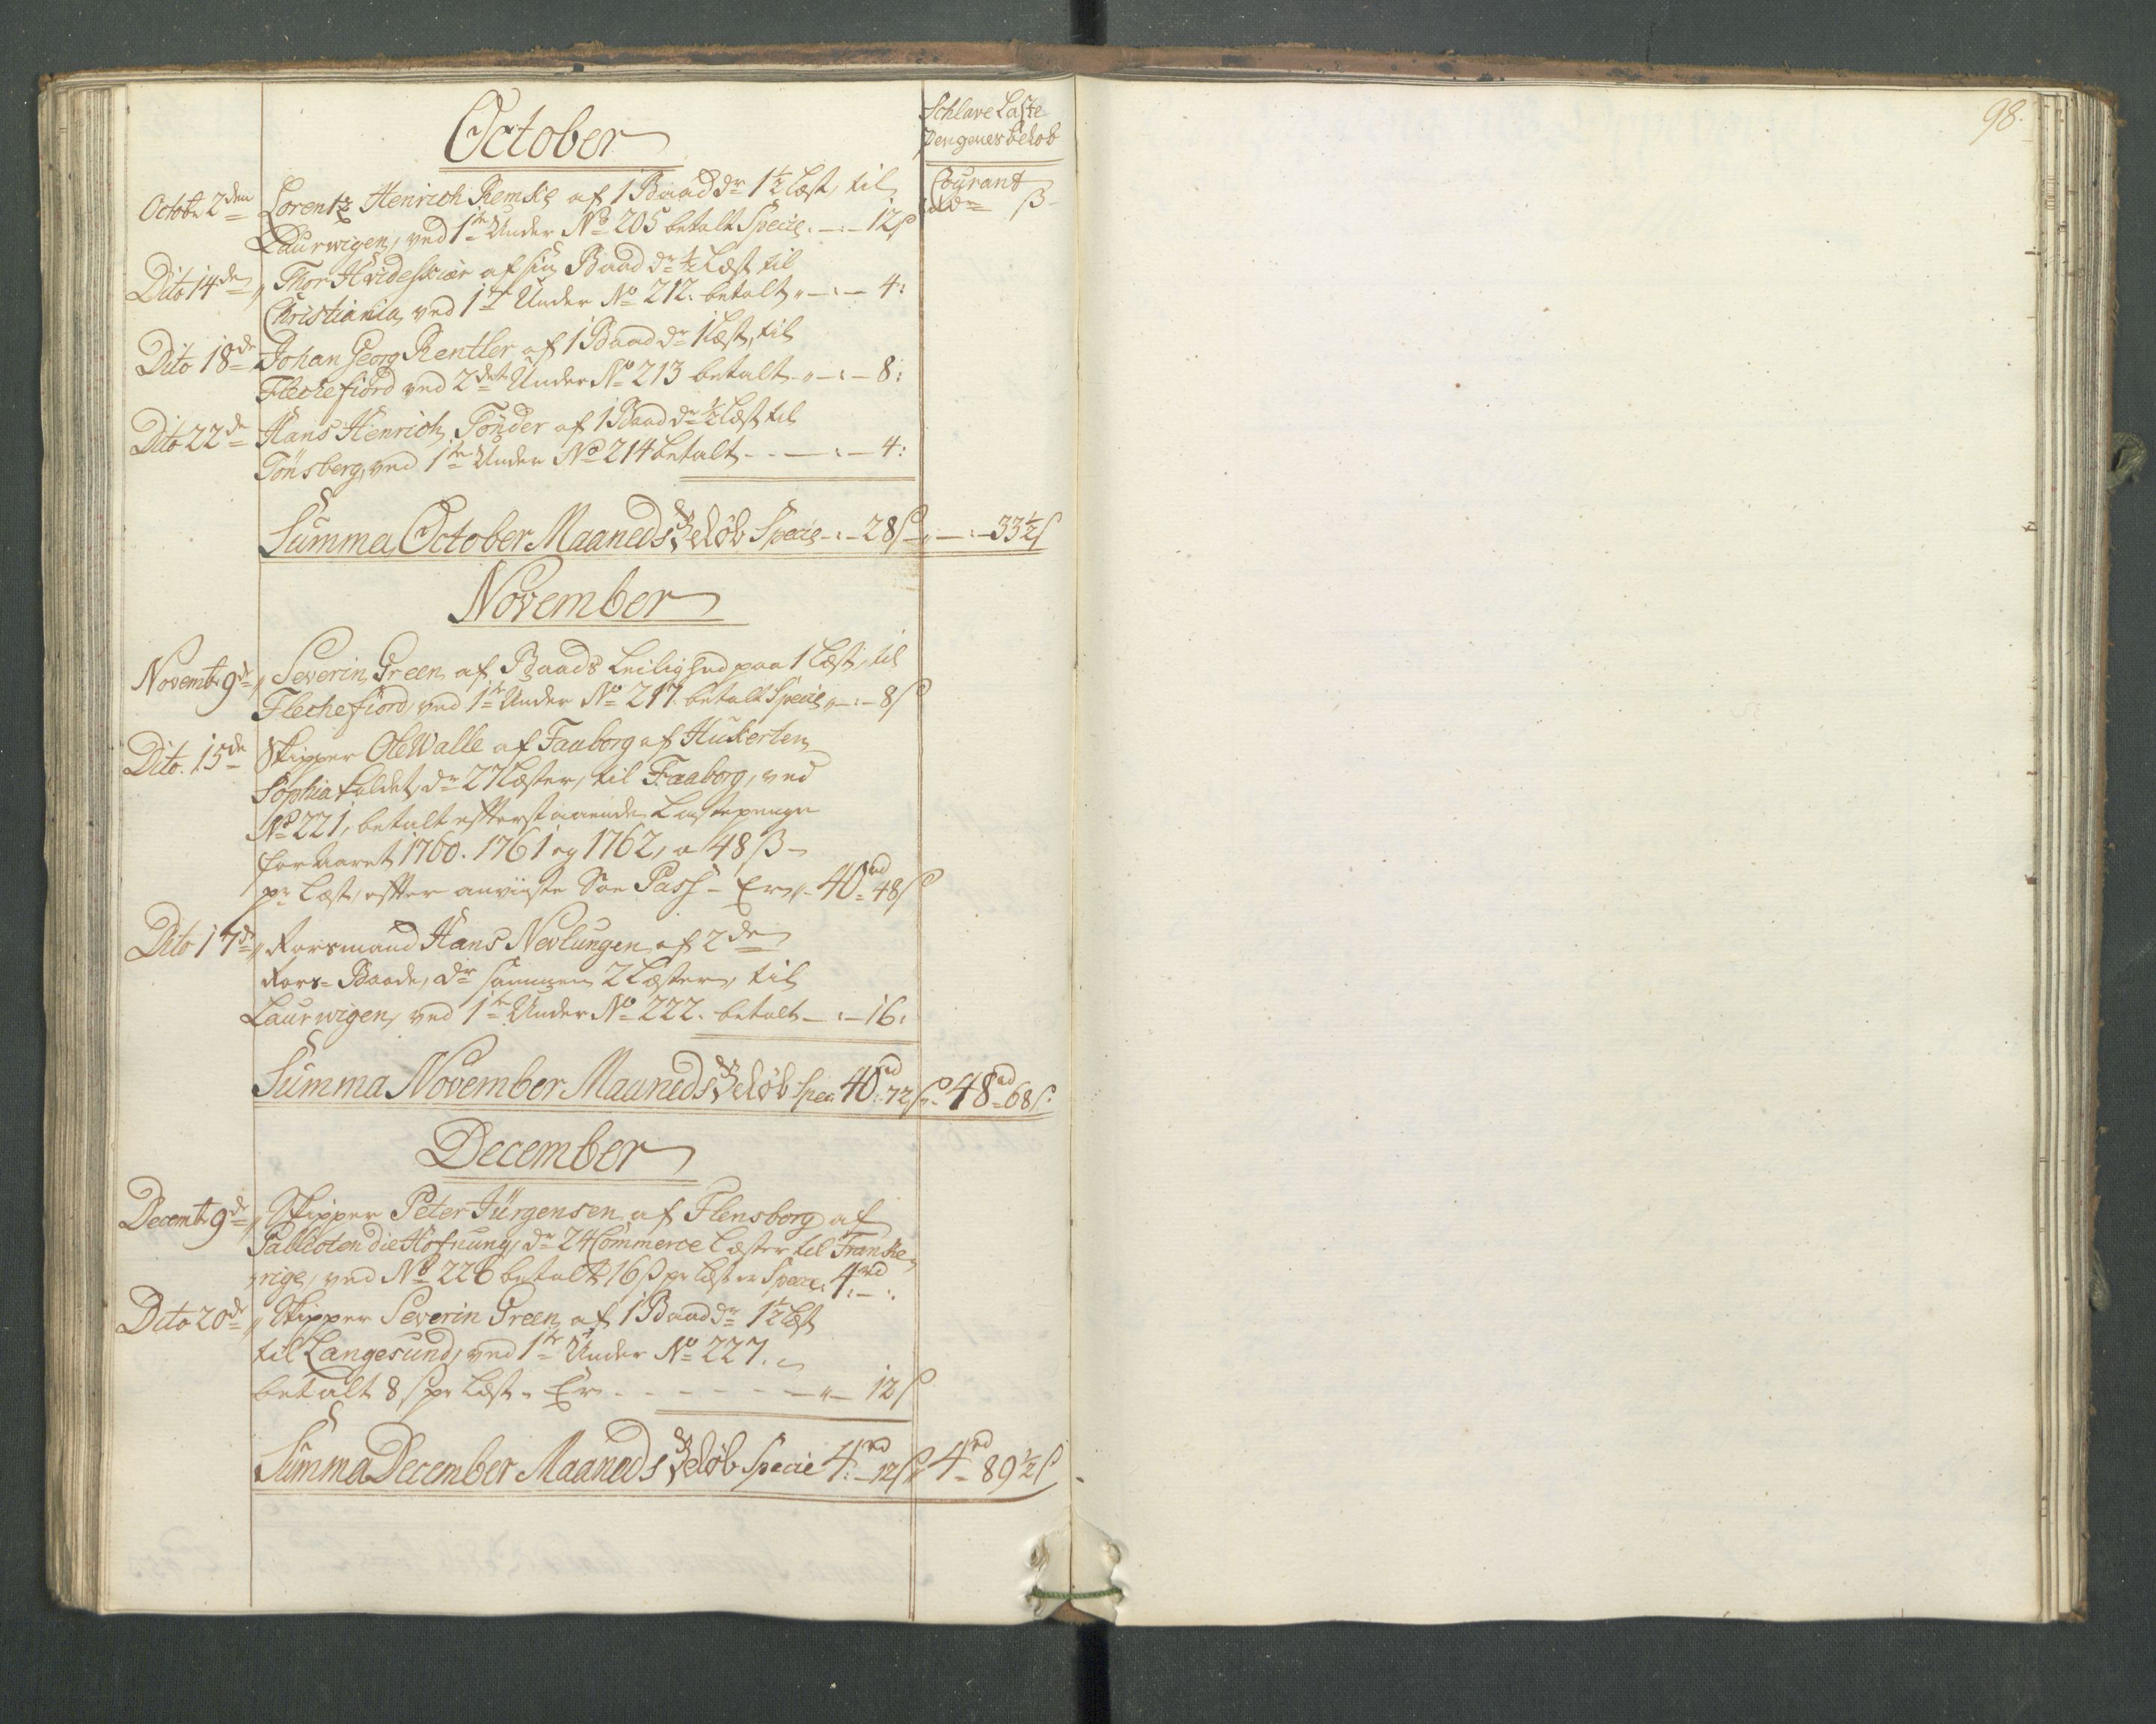 98.
Schlave Laste
Pengenes beløb
Courant
rdr ß
October
Octobr 2den Lorentz Henrich Remke af 1 Baad dr 1½ Læst, til
Laurwigen, ved 1te Under No 205 betalt Specie. - . - 12ß
Dito 14de „ Thor Hvideskiær af sin Baad dr ½ Læst til
Christiania, ved 1te Under No 212. betalt „ - : - 4:
Dito 18de Johan Georg Rentler af 1 Baad dr 1 Læst, til
Flechefiord ved 2det Under No 213 betalt - „ - : - 8:
Dito 22de Hans Henrich Tönder af 1 Baad dr ½ Læst til
Tönsberg, ved 1te Under No 214 betalt - - - : - 4:
Summa October Maaneds Beløb Specie - : - 28ß „ - : - 33½ß
November
Novembr 9de „ Severin Green af Baads Leilighed paa 1 Læst, til
Flechefiord, ved 1te Under No 217. betalt Specie „ - : - 8ß
Dito 15de Skipper Ole Walle af Faaborg af Hukerten
Sophia kaldet, dr 27 Læster, til Faaborg, ved
No 221, betalt efterstaaende Lastepenge
for Aaret 1760. 1761 og 1762, a 48 ß
pr Læst, efter anviiste Søe Pass - Er „ - 40rd 48ß
Dito 17de „ Forsmand Hans Nevlungen af 2de
Fors- Baade, dr sammen 2 Læster, til
Laurwigen, ved 1te Under No 222. betalt - : - 16:
Summa November Maaneds Beløb Spec: 40rd 72ß „ 48rd 68ß
December
Decembr 9de „ Skipper Peter Jürgensen af Flensborg af
Pallioten die Hofnung, dr 24 Commerce Læster til Franke
rige, ved No 226 betalt 16ß pr Læst er Specie 4rd - .
Dito 20de „ Skipper Severin Green af 1 Baad dr 1½ Læst
til Langesund, ved 1te Under No 227.
betalt 8ß pr Læst - Er - - - - - - „ - 12ß
Summa December Maaneds Beløb Specie 4rd 12ß „ 4rd 89½ß